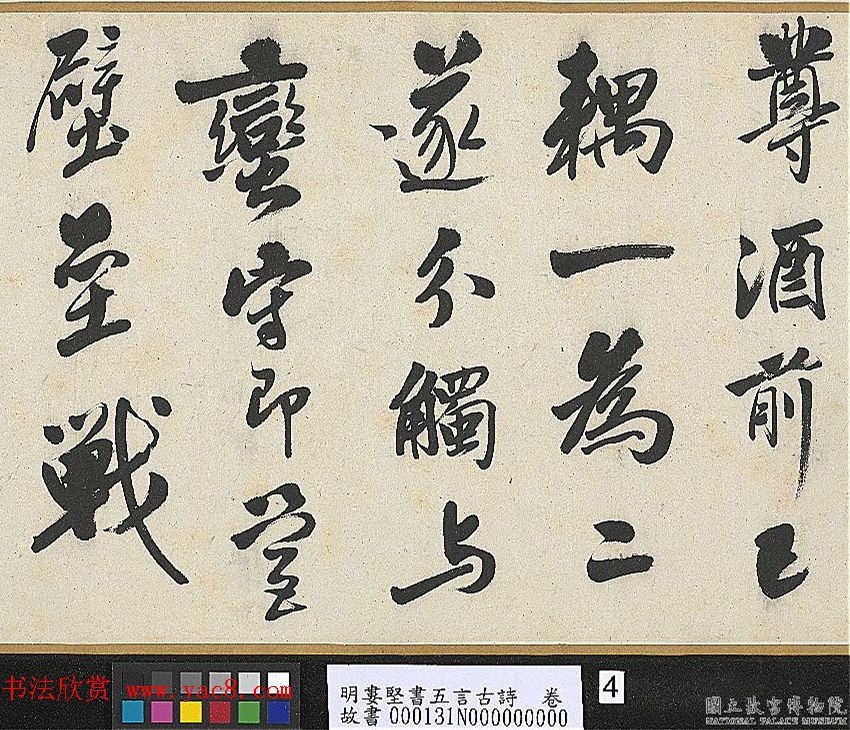 尊酒前已
耦一為二
遂分觸与
蠻守即營
壁壘戰
书法欣赏 www.yac8.com
明婁堅書五言古詩 卷
故書000131N000000000
4
國立故宮博物院
NATIONAL PALACE MUSEUM